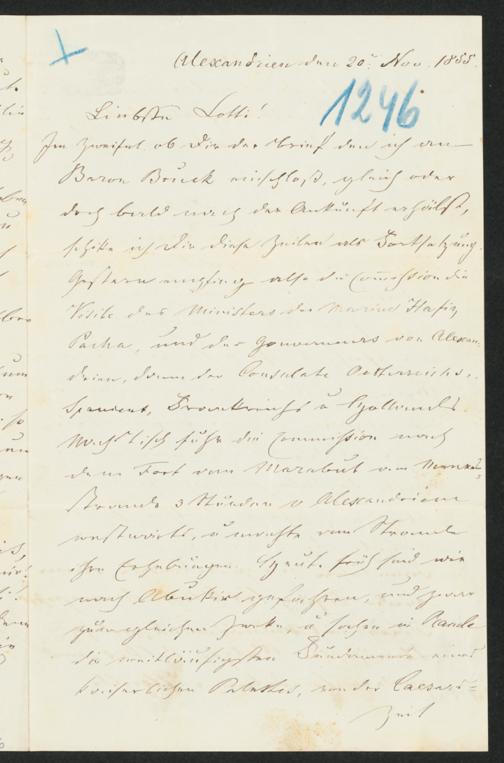 Alexandrien den 20t. Nov. 1855.
1246
Liebste Lotti!
Im Zweifel ob Dir der Brief den ich an
Baron Bruck einschloß, gleich oder
doch bald nach der Ankunft erhältst,
schike ich Dir diese Zeilen als Fortsetzung.
Gestern empfing also die Commission die
Visite des Ministers der Marine Hafiz
Pacha, und des Gouverneurs von Alexan-
drien, dann der Consulate Oesterreichs,
Spaniens, Frankreichs u Hollands.
Nach Tisch fuhr die Commission nach
dem Fort von Marabut am Meeres-
Strande 3 Stunden v Alexandrien
westwärts, u machte am Strande
ihre Erhebungen. Heute früh sind wir
nach Abukir gefahren, und zwar
zum gleichen Zwecke, u sahen im Sande
die weitläufigsten Fundamente eines
kaiserlichen Palastes, von der Caesaren=
Zeit